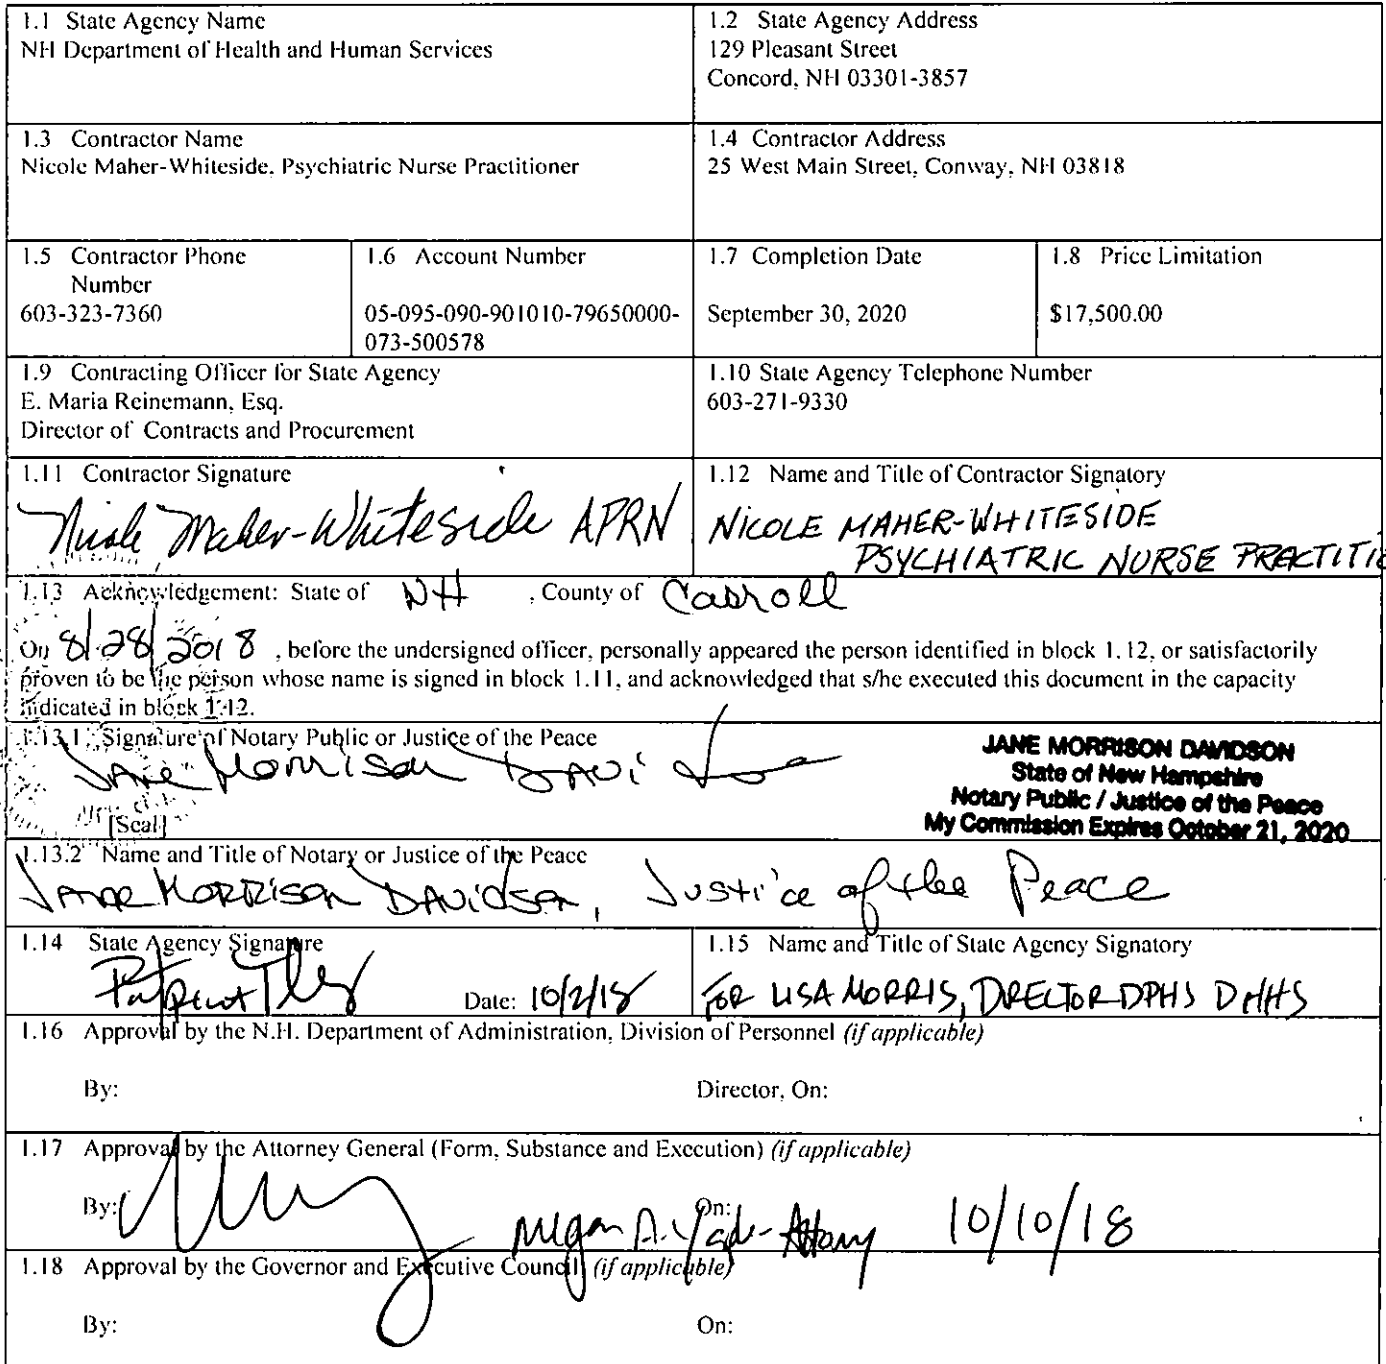 1.1 State Agency Name
NH Department of Health and Human Services
1.2 State Agency Address
129 Pleasant Street
Concord, NH 03301-3857
1.3 Contractor Name
Nicole Maher-Whiteside, Psychiatric Nurse Practitioner
1.4 Contractor Address
25 West Main Street, Conway, NH 03818
1.5 Contractor Phone
Number
603-323-7360
1.6 Account Number
05-095-090-901010-79650000-
073-500578
1.7 Completion Date
September 30, 2020
1.8 Price Limitation
$17,500.00
1.9 Contracting Officer for State Agency
E. Maria Reinemann, Esq.
Director of Contracts and Procurement
1.10 State Agency Telephone Number
603-271-9330
1.11 Contractor Signature
Nicole Maher-Whiteside APRN
1.12 Name and Title of Contractor Signatory
NICOLE MAHER-WHITESIDE
PSYCHIATRIC NURSE PRACTITIO
1.13 Acknowledgement: State of NH , County of Carroll
On 8/28/2018 , before the undersigned officer, personally appeared the person identified in block 1.12, or satisfactorily
proven to be the person whose name is signed in block 1.11, and acknowledged that s/he executed this document in the capacity
indicated in block 1.12.
1.13.1 Signature of Notary Public or Justice of the Peace
Jane Morrison Davidson
[Seal]
JANE MORRISON DAVIDSON
State of New Hampshire
Notary Public / Justice of the Peace
My Commission Expires October 21, 2020
1.13.2 Name and Title of Notary or Justice of the Peace
Jane Morrison Davidson, Justice of the Peace
1.14 State Agency Signature
Date: 10/2/18
1.15 Name and Title of State Agency Signatory
FOR LISA MORRIS, DIRECTOR DPHS DHHS
1.16 Approval by the N.H. Department of Administration, Division of Personnel (if applicable)
By:
Director, On:
1.17 Approval by the Attorney General (Form, Substance and Execution) (if applicable)
By:
Megan A. On: 10/10/18
1.18 Approval by the Governor and Executive Council (if applicable)
By:
On: